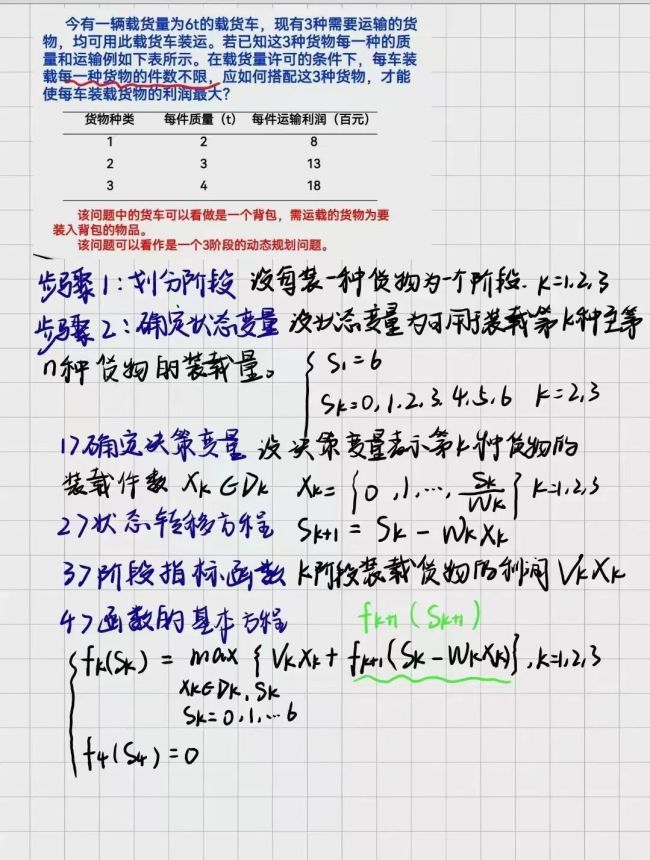 今有一辆载货量为6t的载货车，现有3种需要运输的货
物，均可用此载货车装运。若已知这3种货物每一种的质
量和运输例如下表所示。在载货量许可的条件下，每车装
载每一种货物的件数不限，应如何搭配这3种货物，才能
使每车装载货物的利润最大？
货物种类 每件质量（t） 每件运输利润（百元）
1 2 8
2 3 13
3 4 18
该问题中的货车可以看做是一个背包，需运载的货物为要
装入背包的物品。
该问题可以看作是一个3阶段的动态规划问题。
步骤1：划分阶段 设每装一种货物为一个阶段. K=1,2,3
步骤2：确定状态变量 设状态变量为可用于装载第k种至第
n种货物的装载量。
{ S₁=6
Sk=0,1,2,3,4,5,6 K=2,3
1>确定决策变量 设决策变量表示第k种货物的
装载件数 Xk∈Dk Xk={0,1,…,Sk/Wk} K=1,2,3
2>状态转移方程 Sk+1 = Sk - WkXk
3>阶段指标函数 K阶段装载货物的利润 VkXk
4>函数的基本方程 fk+1(Sk+1)
{ fk(Sk) = max {VkXk + fk+1(Sk-WkXk)}, k=1,2,3
Xk∈Dk, Sk
Sk=0,1,…6
f₄(S₄)=0